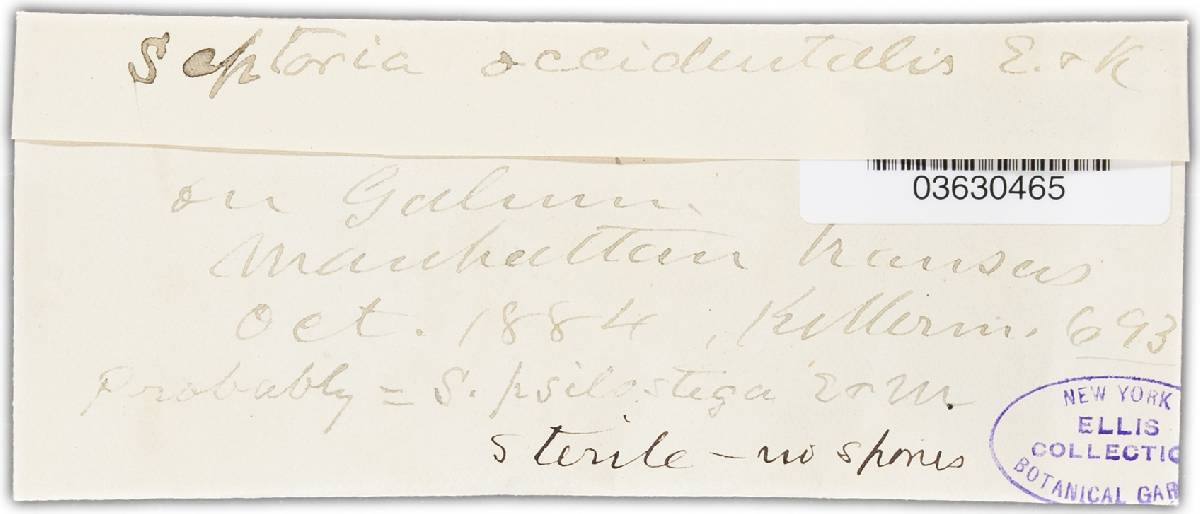 Septoria occidentalis E. & K
03630465
on Galium.
Manhattan Kansas
Oct. 1884, Kellerm. 693
Probably = S. psilostega E & M.
Sterile – no spores
NEW YORK
ELLIS
COLLECTIO
BOTANICAL GAR